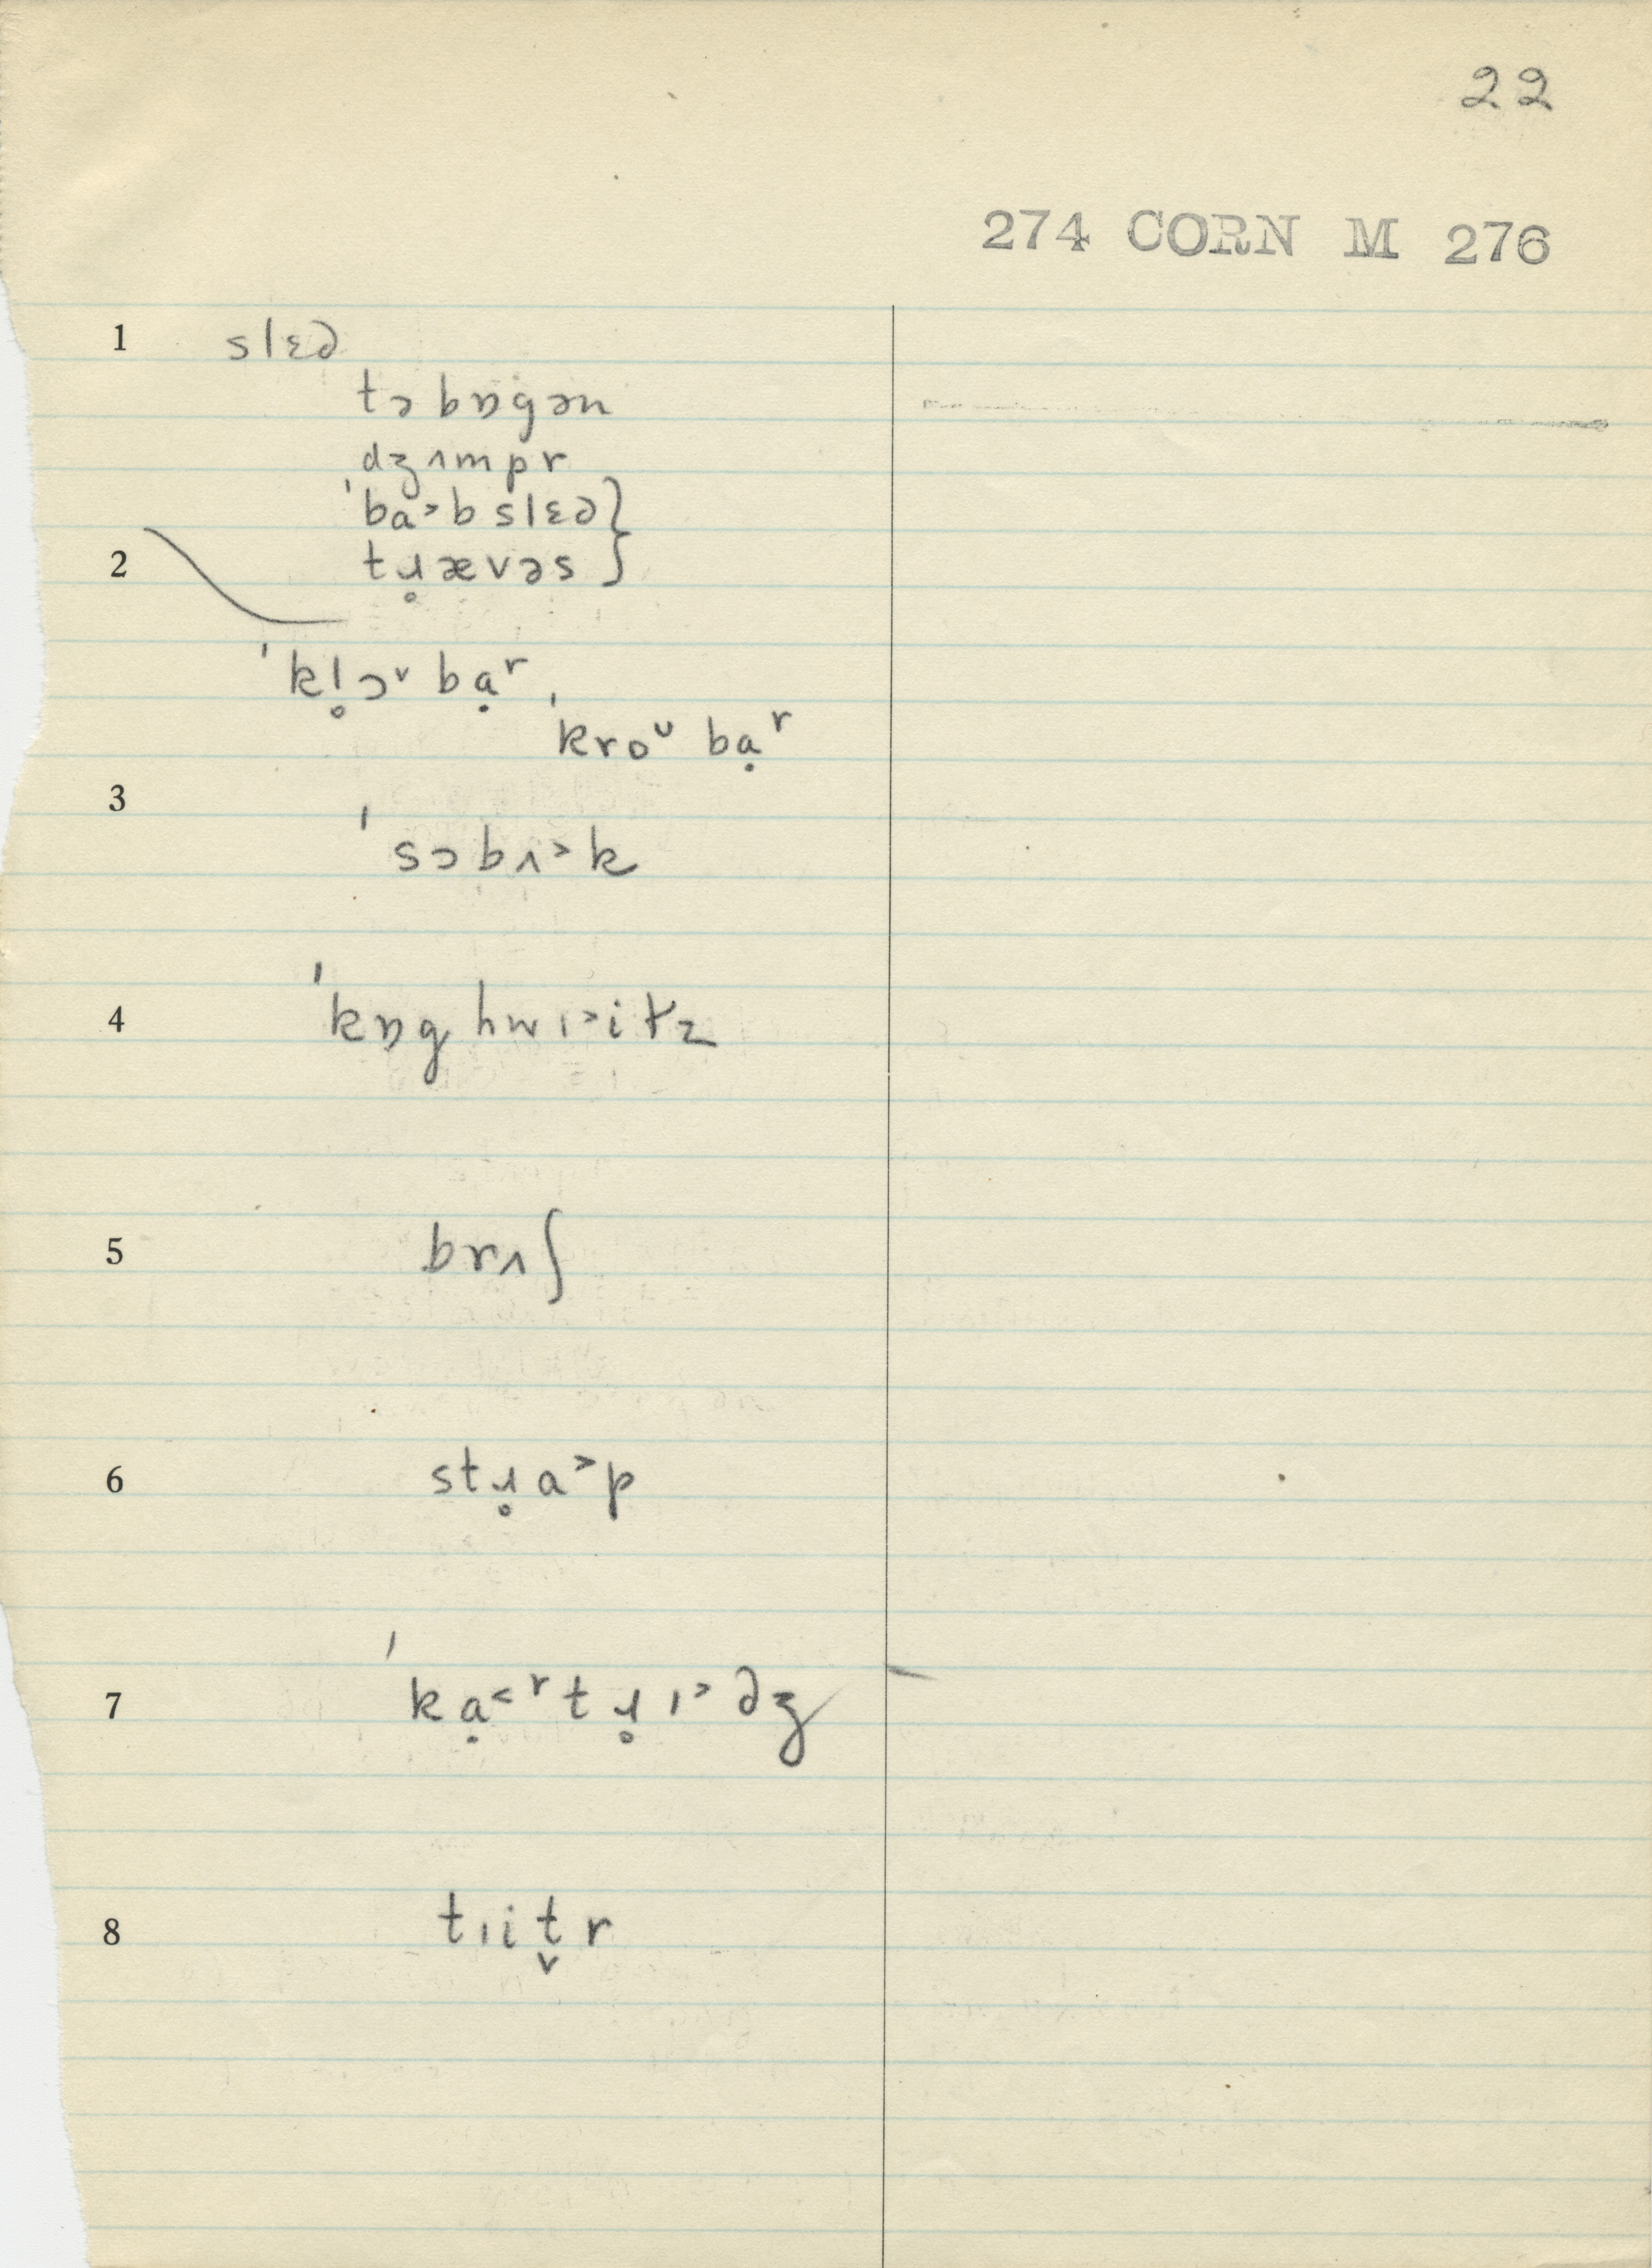 22
274 CORN M 276
1 slɛd
təbɒgən
dʒʌmpr
ˈba˃b slɛd}
2 tɹ̥ævəs}
ˈkl̥ɔᵛ bạʳ
ˈkroᵁ bạʳ
3 ˈsɔbʌ˃k
4 ˈkɒg hwɪ˃itz
5 brʌʃ
6 stɹ̥a˃p
7 ˈkạ˂ʳtɹ̥ɪ˃dʒ
8 tɪit̬r